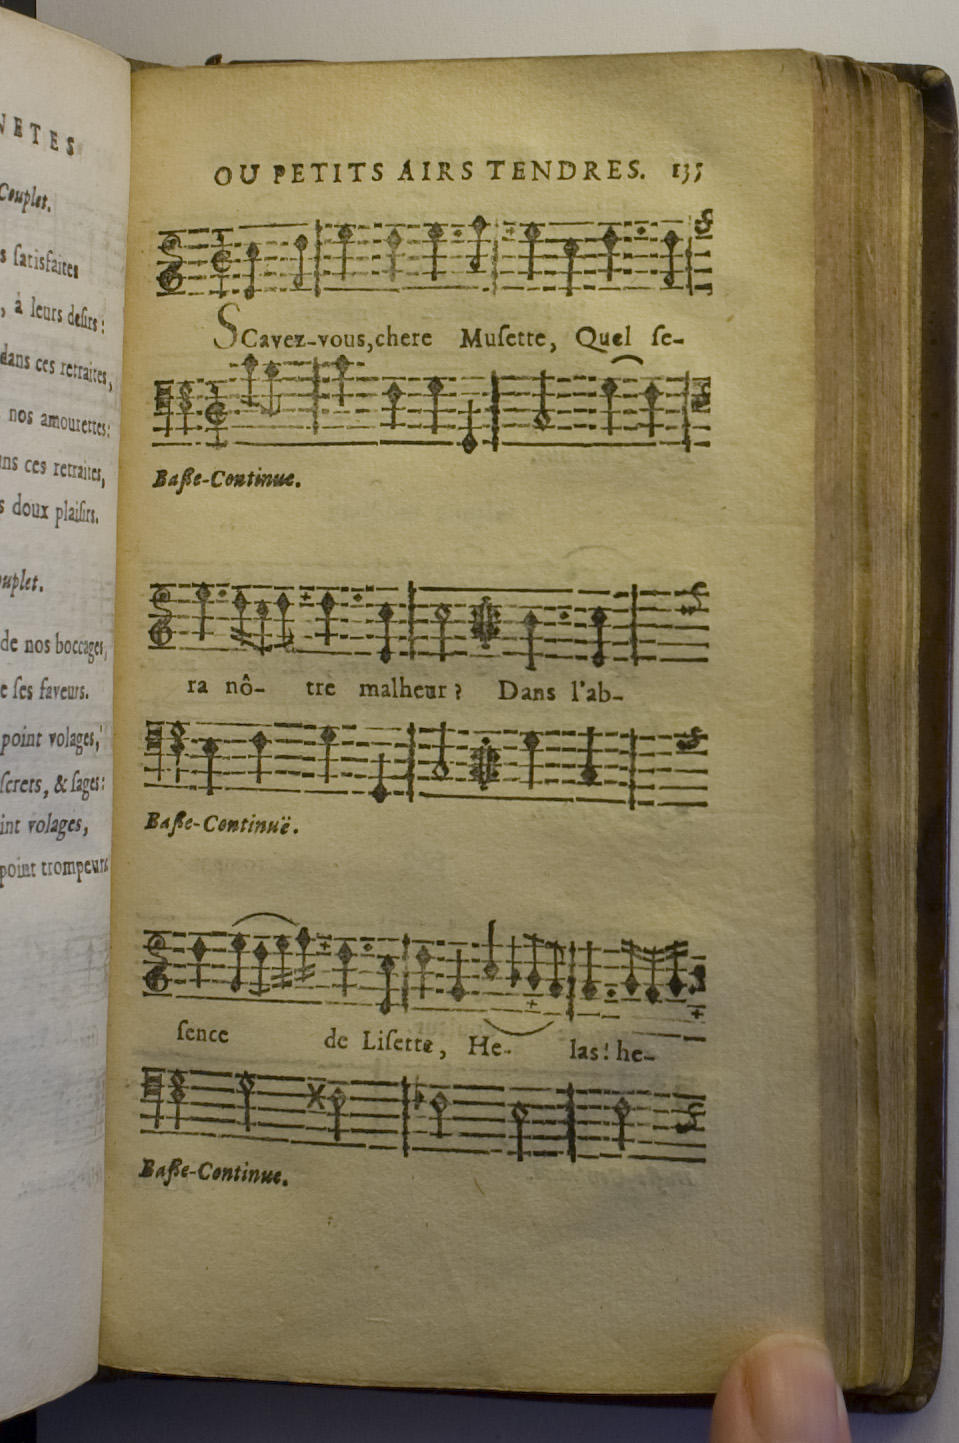 NETES
Couplet.
s ſatisfaites
, à leurs deſirs:
dans ces retraites,
nos amourettes:
ns ces retraites,
s doux plaiſirs.
uplet.
de nos boccages,
e ſes faveurs.
point volages,
ſcrets, & ſages:
int volages,
point trompeurs
OU PETITS AIRS TENDRES. 135
SCavez-vous, chere Muſette, Quel ſe-
Baſſe-Continue.
ra nô- tre malheur? Dans l'ab-
Baſſe-Continuë.
ſence de Liſette, He- las! he-
Baſſe-Continue.